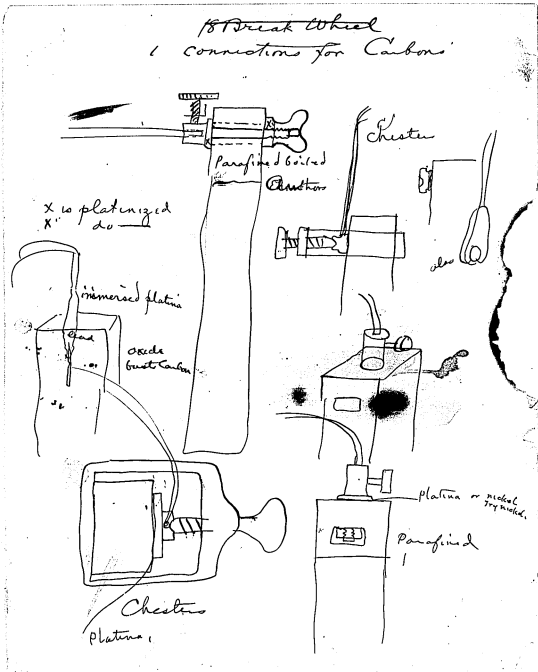 18 Break Wheel
1 connections for Carbons
Chester
Parafined boiled
X is platinized
X" do
also
immersed platina
lead
oxide
bust Carbon
platina or nickel
try nickel,
Parafined
1
Chesters
platina,